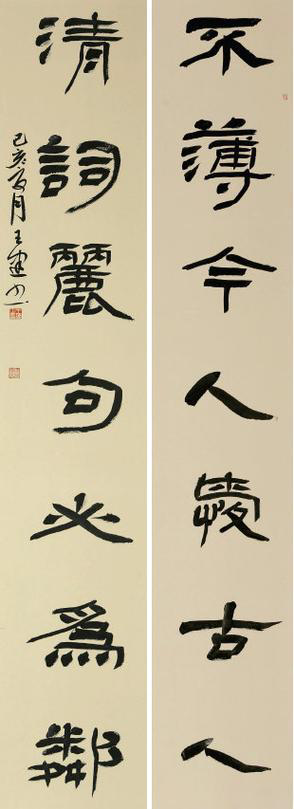 不薄今人愛古人
清詞麗句必爲鄰
己亥夏月王